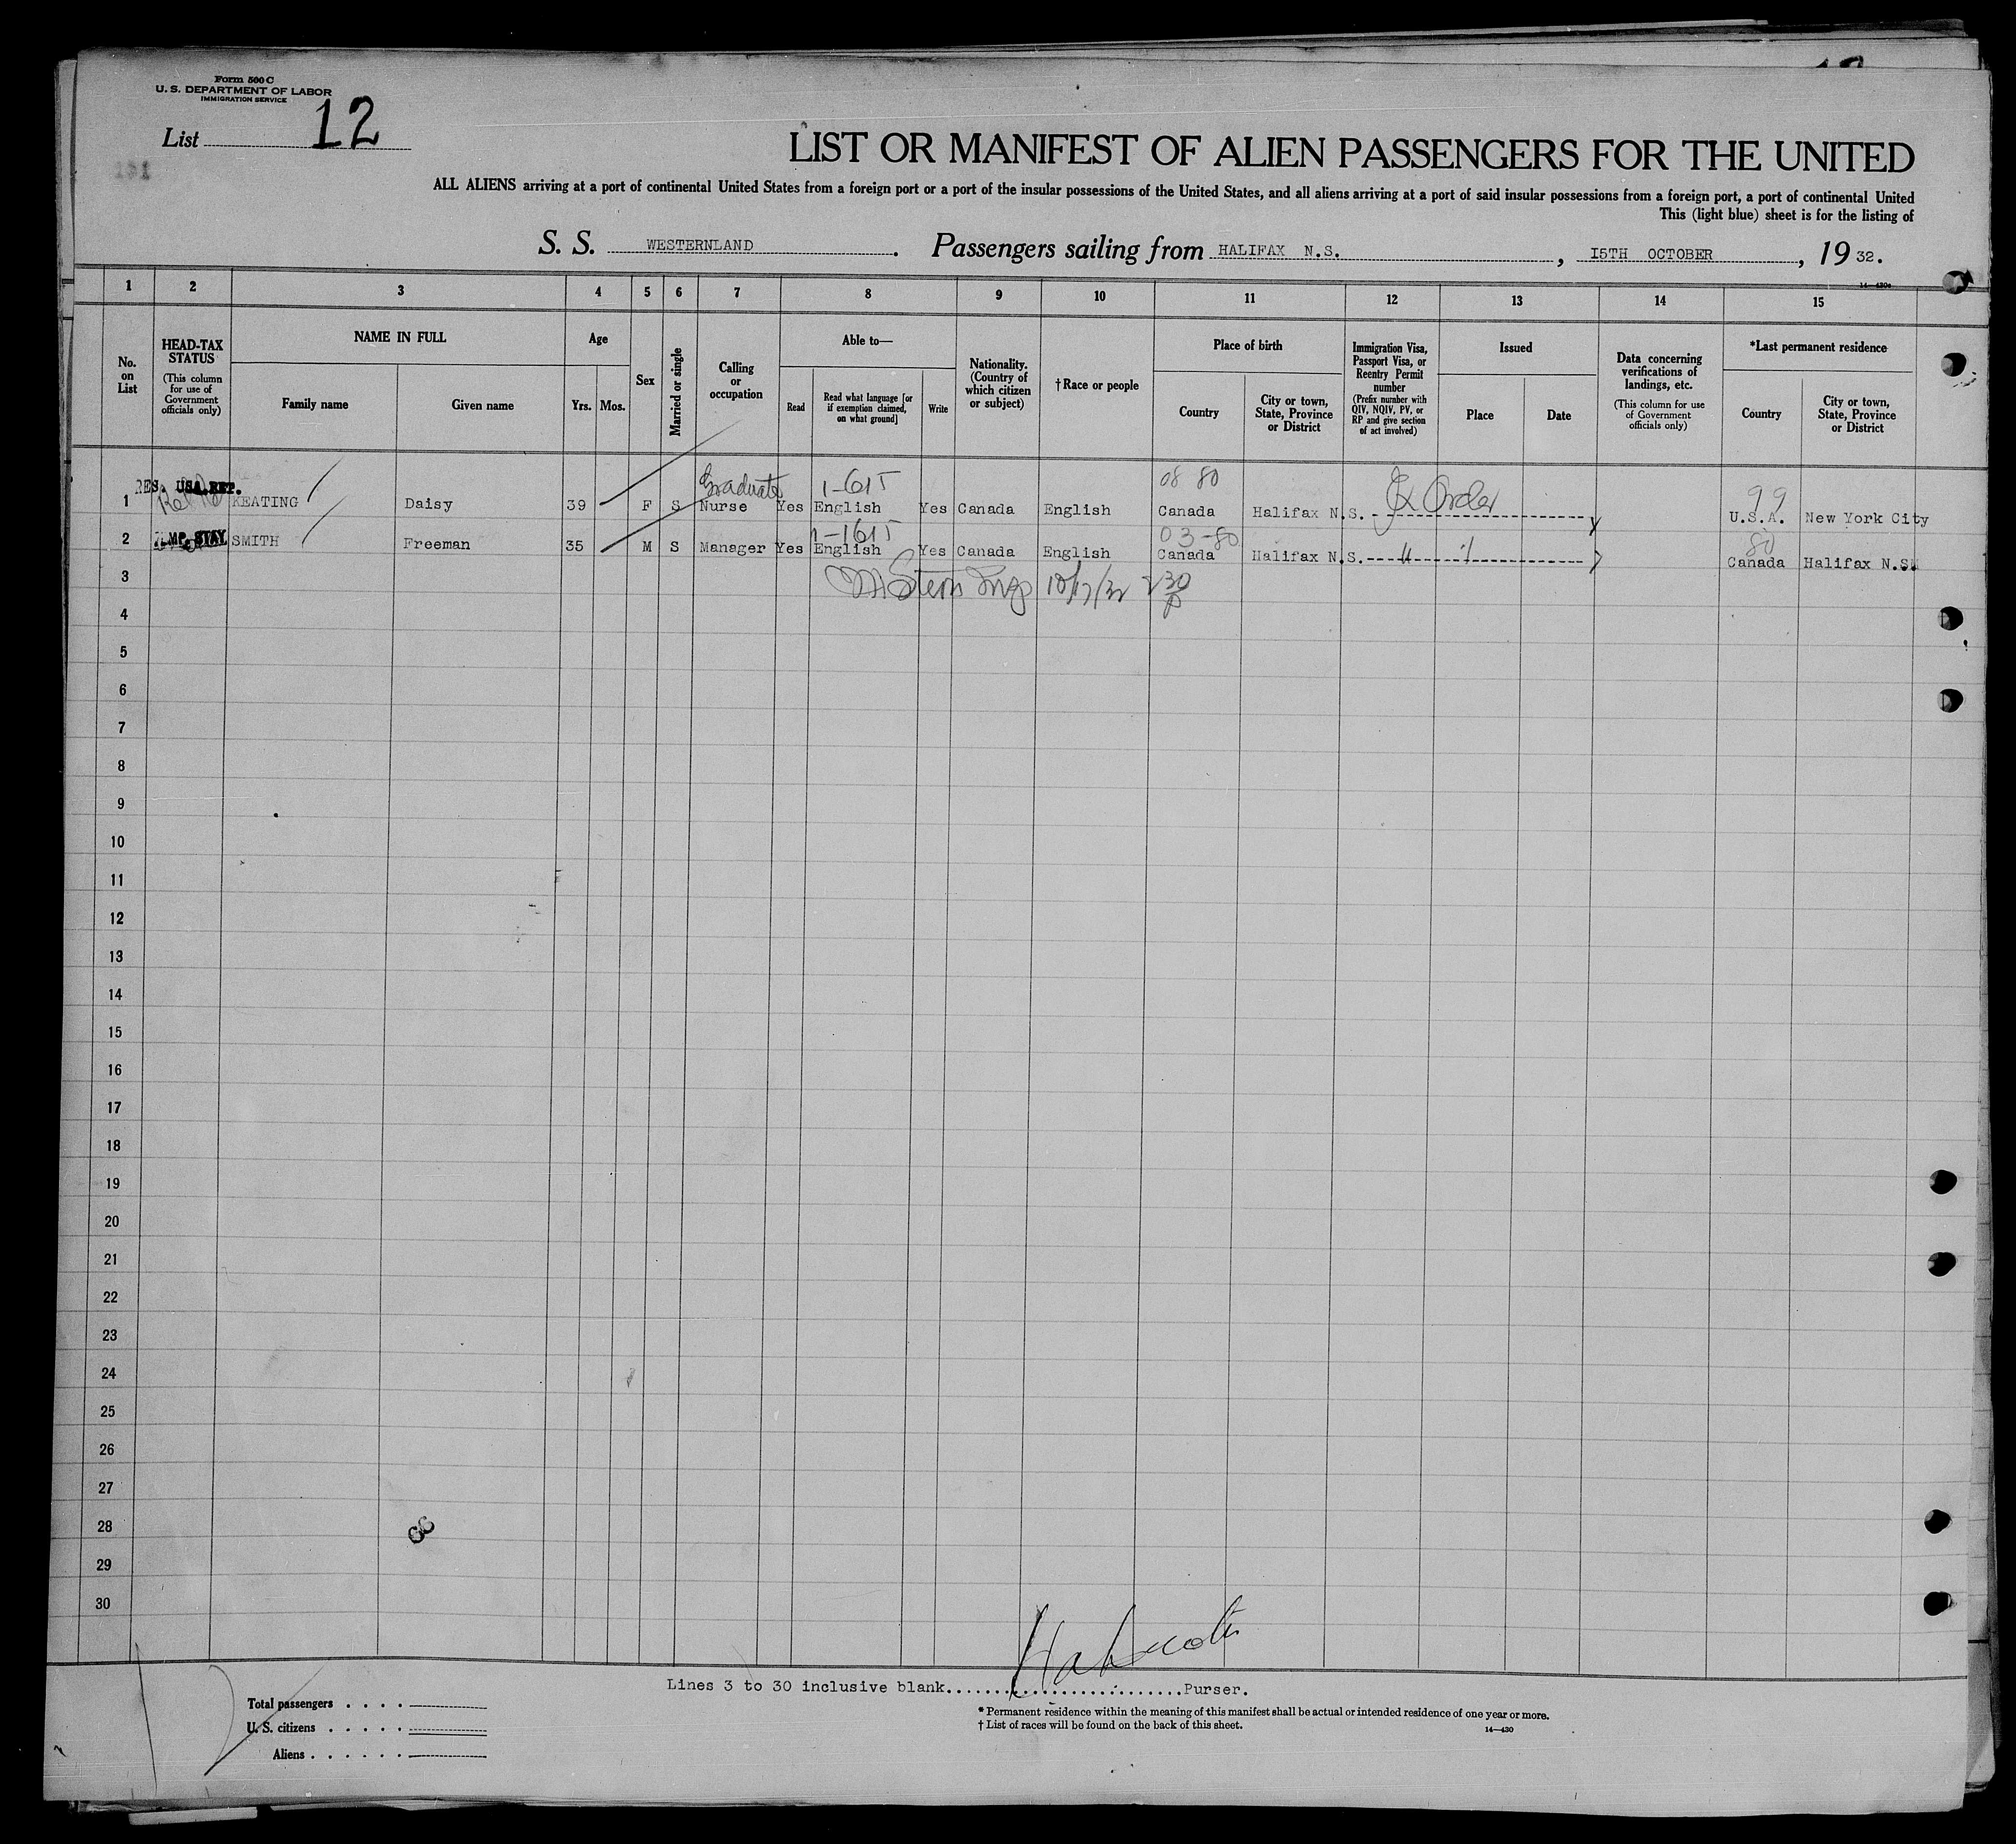 Form 500 C
U. S. DEPARTMENT OF LABOR
IMMIGRATION SERVICE
List 12
151
LIST OR MANIFEST OF ALIEN PASSENGERS FOR THE UNITED
ALL ALIENS arriving at a port of continental United States from a foreign port or a port of the insular possessions of the United States, and all aliens arriving at a port of said insular possessions from a foreign port, a port of continental United
This (light blue) sheet is for the listing of
S. S. WESTERNLAND. Passengers sailing from HALIFAX N.S., 15TH OCTOBER, 19 32.
14—430a
1 2 3 4 5 6 7 8 9 10 11 12 13 14 15
No. on List
HEAD-TAX STATUS
(This column for use of Government officials only)
NAME IN FULL
Family name
Given name
Age
Yrs. Mos.
Sex
Married or single
Calling or occupation
Able to—
Read
Read what language [or if exemption claimed, on what ground]
Write
Nationality. (Country of which citizen or subject)
†Race or people
Place of birth
Country
City or town, State, Province or District
Immigration Visa, Passport Visa, or Reentry Permit number
(Prefix number with QIV, NQIV, PV, or RP and give section of act involved)
Issued
Place
Date
Data concerning verifications of landings, etc.
(This column for use of Government officials only)
*Last permanent residence
Country
City or town, State, Province or District
RES. USA RET. Graduate 1-615 08 80 Ex Order 99
1 KEATING Daisy 39 F S Nurse Yes English Yes Canada English Canada Halifax N.S. U.S.A. New York City
TMP. STAY 1-1615 03-80 80
2 SMITH Freeman 35 M S Manager Yes English Yes Canada English Canada Halifax N.S. " " Canada Halifax N.S.
3 10/17/32 2 30 P
4
5
6
7
8
9
10
11
12
13
14
15
16
17
18
19
20
21
22
23
24
25
26
27
28
29
30
Lines 3 to 30 inclusive blank.........................Purser.
Total passengers . . . .
U. S. citizens . . . . .
Aliens . . . . . .
* Permanent residence within the meaning of this manifest shall be actual or intended residence of one year or more.
† List of races will be found on the back of this sheet.
14—430